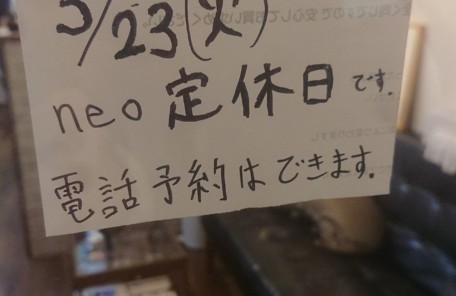 5/23(火)
neo 定休日です.
電話予約はできます.